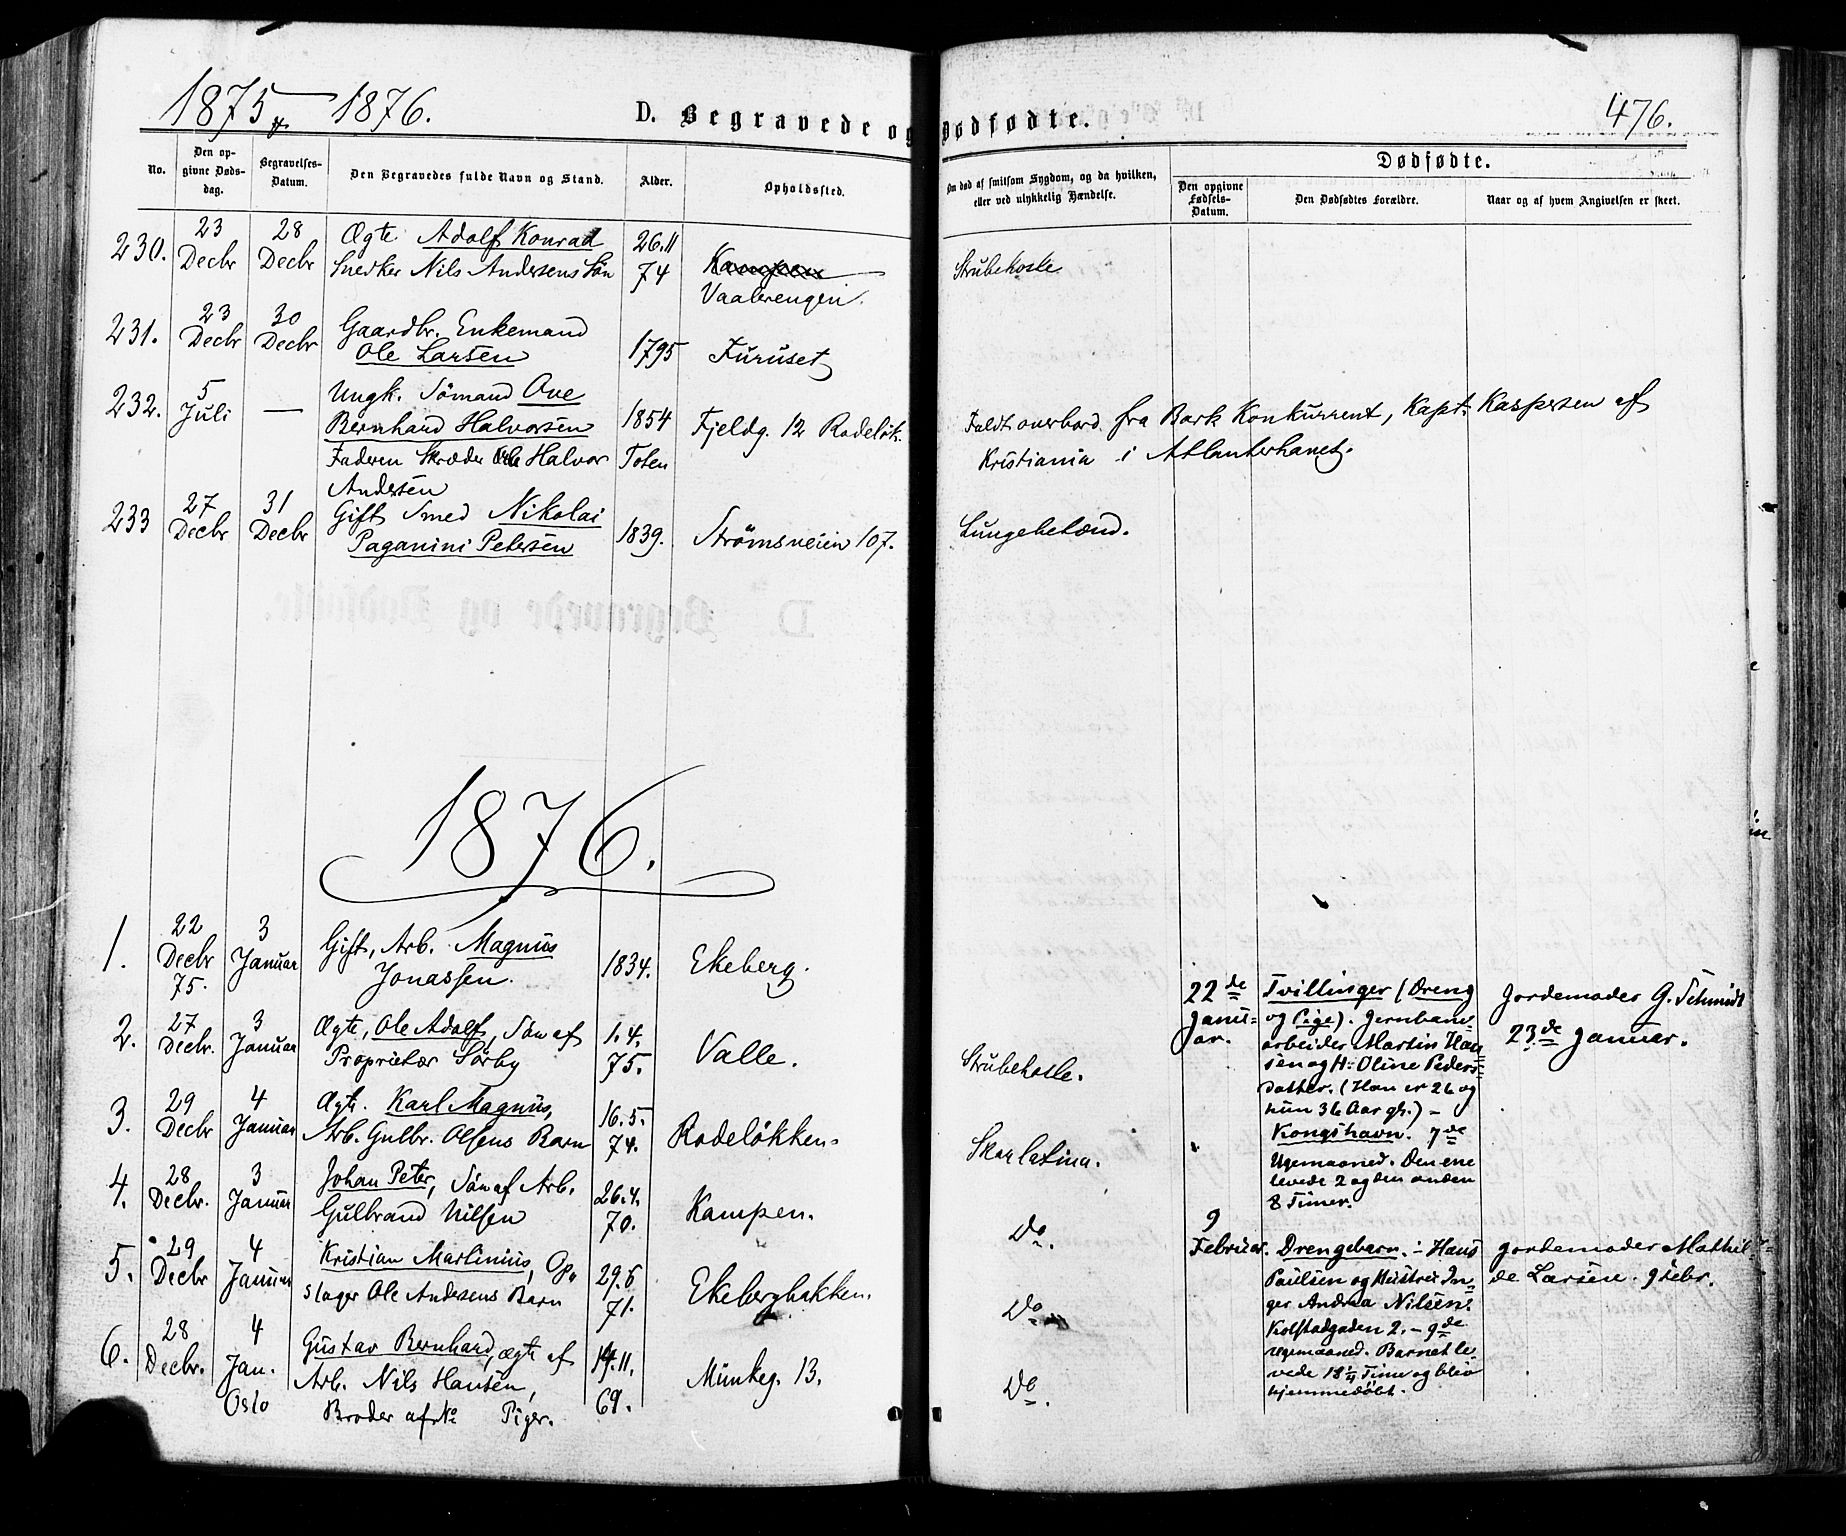 1875 – 1876.
D. Begravede og Dødfødte.
476.
No.
Den op-
givne Døds-
dag.
Begravelses-
Datum.
Den Begravedes fulde Navn og Stand.
Alder.
Opholdssted.
Om død af smitsom Sygdom, og da hvilken,
eller ved ulykkelig Hændelse.
Dødfødte.
Den opgivne
Fødsels-
Datum.
Den Dødfødtes Forældre.
Naar og af hvem Angivelsen er skeet.
230. 23 Decbr 28 Decbr Ægte Adolf Konrad 26.11
Snedker Nils Andersens Søn 74 Kampen Strubehoste
Vaalerengen.
231. 23 Decbr 30 Decbr Gaardbr. Enkemand
Ole Larsen 1795 Furuset
232. 5 Juli — Ungk. Sömand Ove
Bernhard Halvorsen 1854 Fjeldg. 12 Rodeløk. Faldt overbord fra Bark Konkurrent, Kapt. Kaspersen af
Faderen Skræder Halvor Toten Kristiania i Atlanterhavet.
Andersen
233 27 Decbr 31 Decbr Gift Smed Nikolai
Paganini Petersen 1839. Strömsveien 107. Lungebetænd.
1876.
1. 22 Decbr 75. 3 Januar Gift, Arb. Magnus
Jonassen. 1834. Ekeberg.
2. 27 Decbr. 3 Januar Ægte, Ole Adolf, Søn af 1.4.
Proprietær Sörby 75. Valle. Strubehoste.
3. 29 Decbr 4 Januar Ægte. Karl Magnus, 16.5.
Arb. Gulbr. Olsens Barn 74. Rodeløkken. Skarlatina.
4. 28 Decbr. 3 Januar Johan Peter, Søn af Arb. 26.4.
Gulbrand Nilsen 70. Kampen. Do.
5. 29 Decbr 4 Januar Kristian Martinius, Op-
slager Ole Andersens Barn 29.5 71. Ekebergbakken. Do
6. 28 Decbr. 4 Jan. Oslo Gustav Bernhard, ægte af 14.11.
Arb. Nils Hansen, 69. Munkeg. 13. Do.
Broder af No Piger.
22de Janu-
ar.
Tvillinger (Dreng
og Pige). Jernbane-
arbeider Martin Han-
sen og H: Oline Peders-
datter. (Han er 26 og
hun 36 Aar gl.) –
Kongshavn. 7de
Ugemaaned. Den ene
levede 2 og den anden
8 Timer.
Jordemoder G. Schmidt
23de Januar.
9
Februar.
Drengebarn. – Hans
Paulsen og Hustru In-
ger Andrea Nilsen.
Kolstadgaden 2. – 9de
Ugemaaned. Barnet le-
vede 18 Time og blev
hjemmedöbt.
Jordemoder Mathil-
de Larsen. 9 Febr.